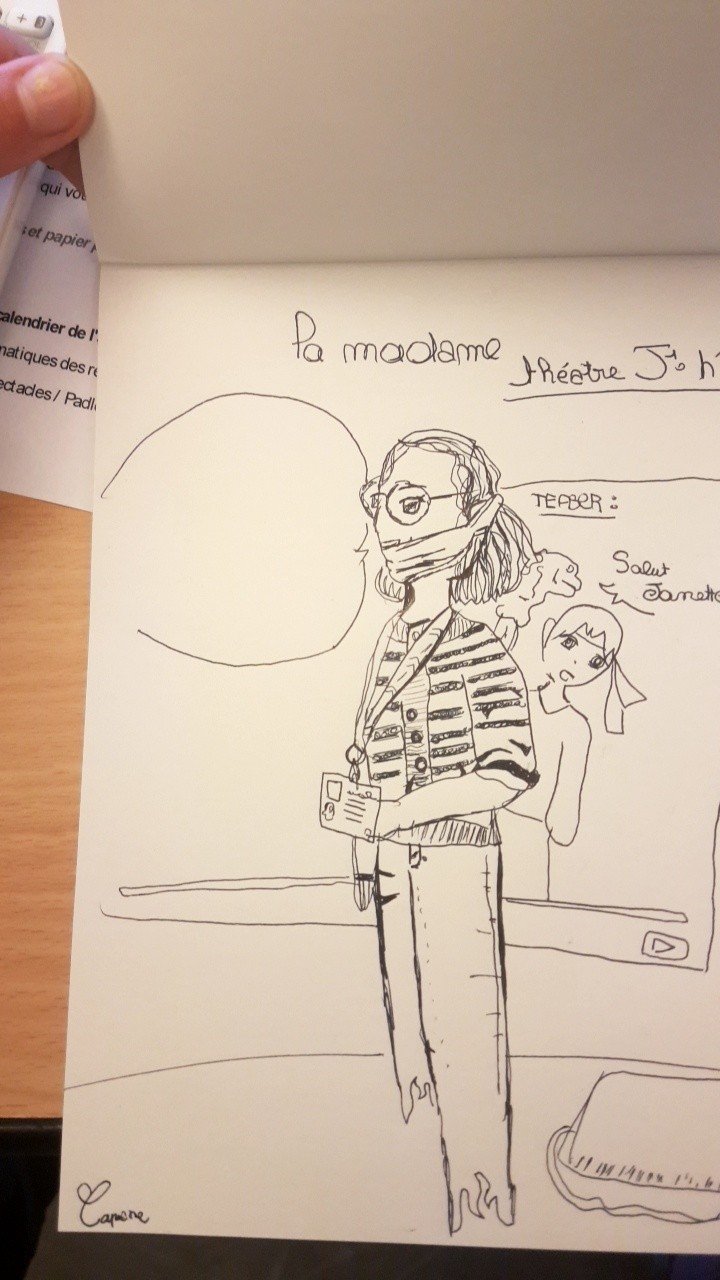 qui vou
et papier
calendrier de l'
matiques des re
ectacles / Padl
Pa madame
théatre
TEASER :
Salut
Janette